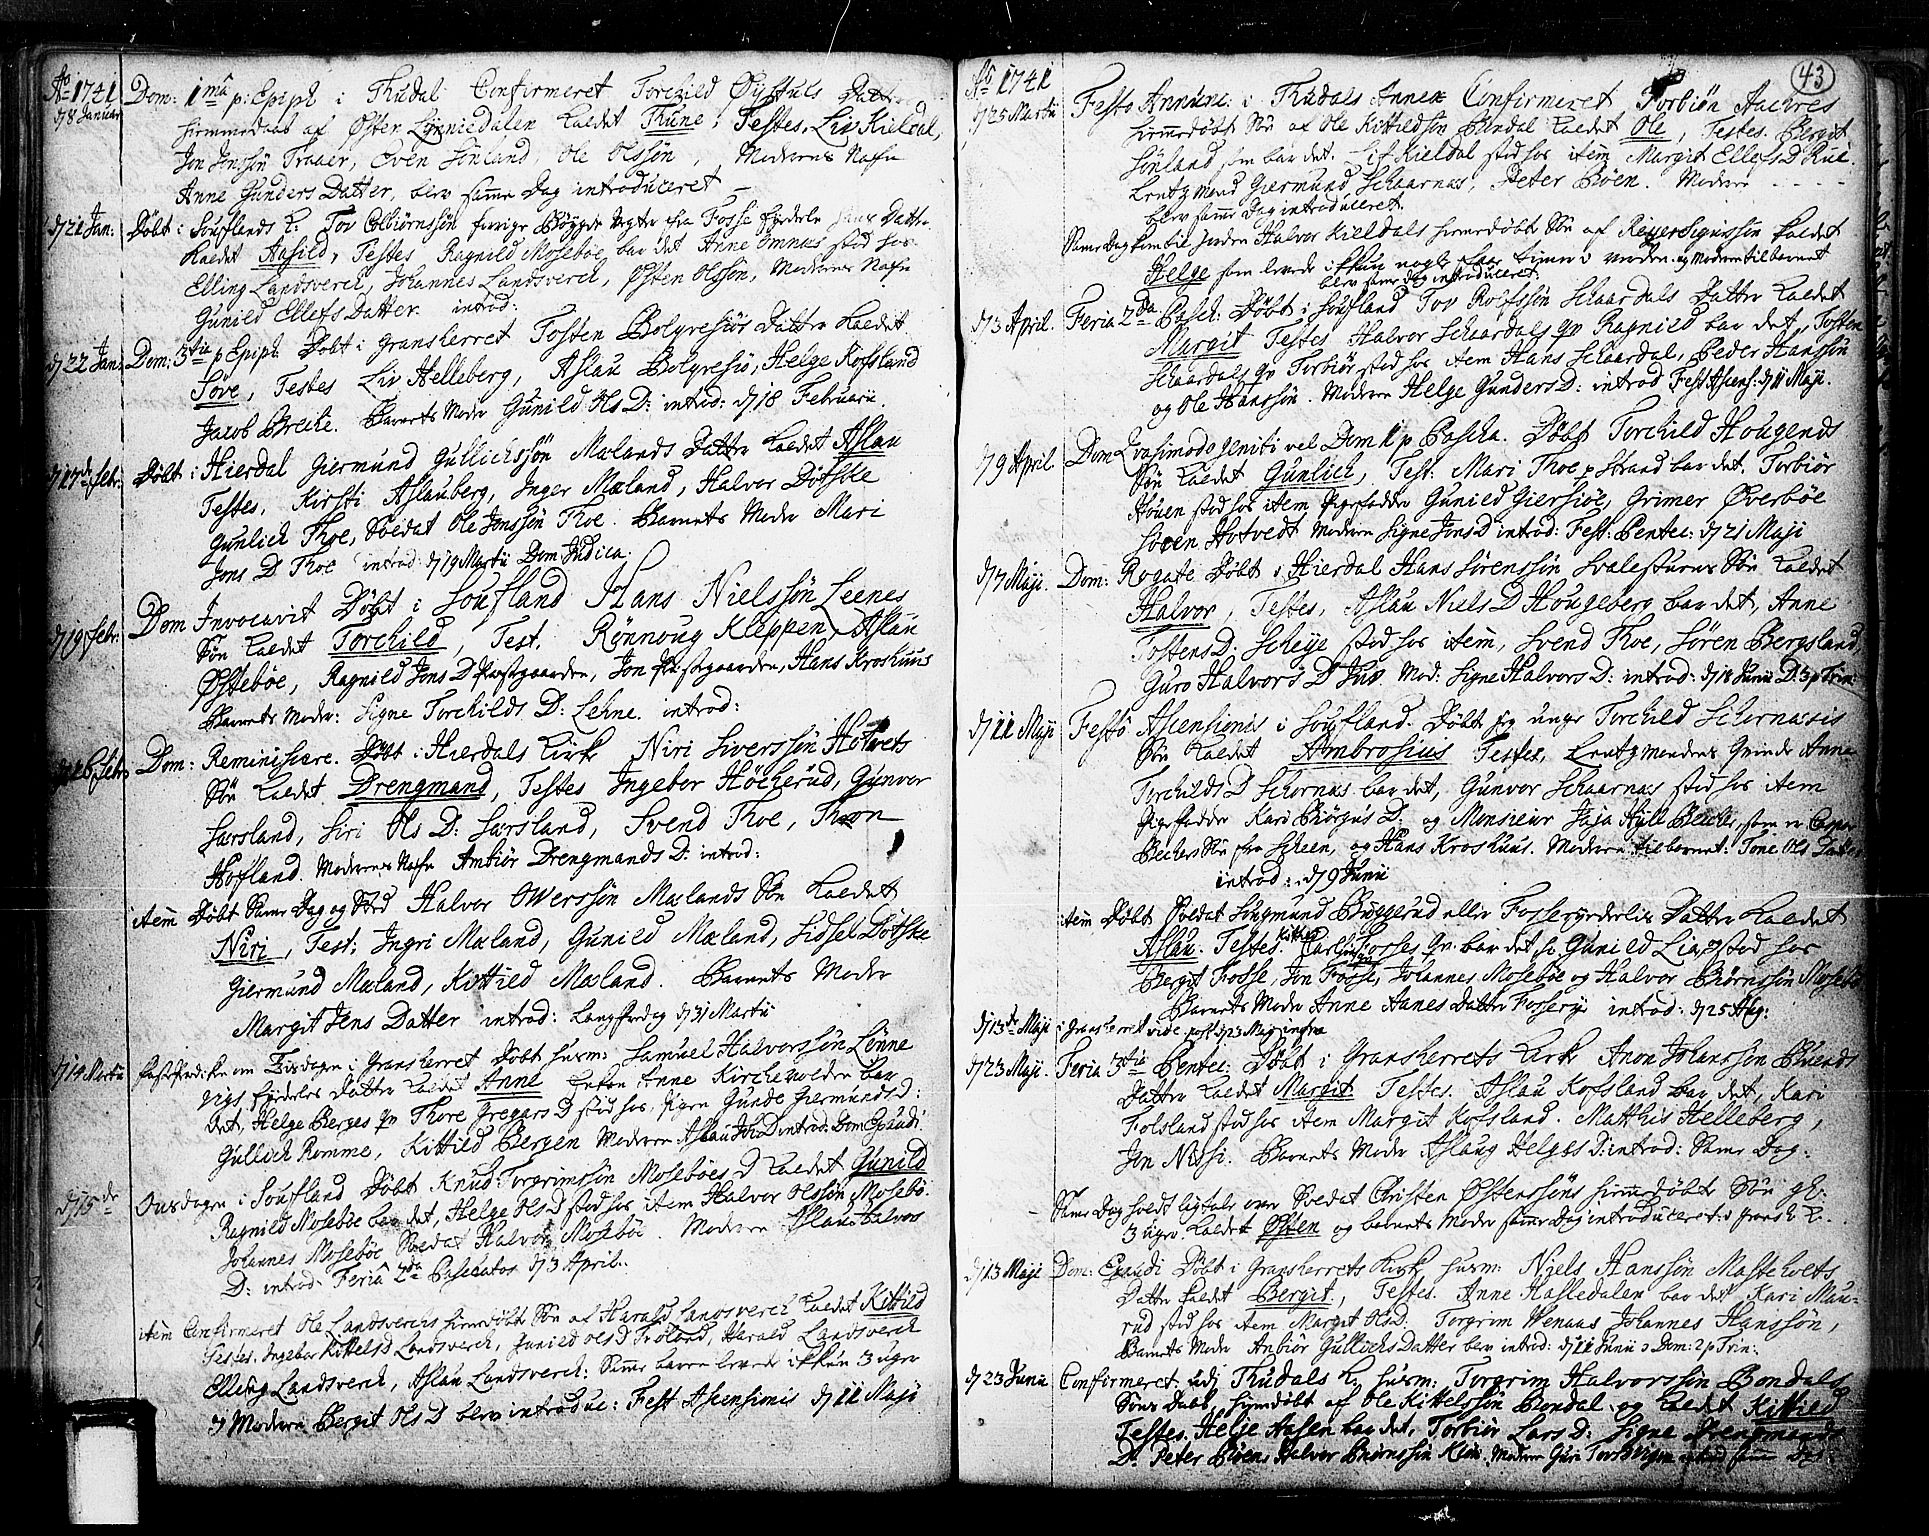 Ao 1741
d 8 Januar
Dom: 1mâ p: Epiph i Thudal Confirmeret Torchild Øystuls Datter
hiemmedaab af Østen Lynniedalen kaldet Thune, Testes, Liv Kieldal,
Jon Jonssön Traaer, Even Sönland, Ole Olssön, Moderens Nafn
Anne Gunders Datter, blev samme Dag introduceret
d 21 Jan: Döbt i Souflands K: Tov Colbiørnssön forrige Bøygger Vegter fra Fosse föderle hans Datter
kaldet Aasild, Testes Ragnild Moseböe bar det Anne Omnæs stod hos
Elling Landsverck, Johannes Landsverck, Østen Olssön, Moderens Nafn
Gunild Ellefs Datter introd:
d 22 Jan: Dom: 3tia p Epiph Döbt i Gransherret Tosten Bolgresiös Datter kaldet
Tove, Testes Liv Helleberg, Aslau Bolgresiö, Helge Kofsland
Jacob Brecke. Barnets Moder Gunild Ols D: introd: d 18 Februarii.
Döbt i Hierdal Giermund Gullichssön Mælands Datter kaldet Aslau
Testes, Kirsti Aslauberg, Inger Mæland, Halvor Dötske
Gunlich Thoe, Soldat Ole Jonssön Thoe. Barnets Moder Mari
Jons D Thoe introd: d 19 Martii Dom: Judica.
d 19 Febr: Dom Invocavit Döbt i Soufland Hans Nielssön Leenes
Sön kaldet Torchild, Test. Rönnoug Kleppen, Aslau
Østeböe, Ragnild Jons D Præstgaarden, Jon Præstegaarden, Hans Kroshuus
Barnets Moder: Signe Torchilds D: Lehne. introd:
d 26 Febr: Dom: Reminiscere. Döbt i Hierdals Kirk Niri Siverssön Hotvets
Sön kaldet Drengmand, Testes Ingebor Höckerud, Gunvor
Særsland, Siri Ols D: Særsland, Svend Thoe, Thron
Hofland. Moderens Nafn Ambiör Drengmands D: introd:
item Döbt Same Dag og Sted Halvor Owerssön Mælands Sön kaldet
Niri, Test: Ingri Mæland, Gunild Mæland, Sidsel Dötske
Giermund Mæland, Kittild Mæland. Barnets Moder
Margit Jens Datter introd: Langfredag d 31 Martii
d 14 Martii i Gransherret Döbt husm: Samuel Halvorssön Lönne
vigs föderles Datter kaldet Anne Enken Anne Kirchevolden bar
det, Helge Berges Qv Thore Gregars D stod hos, Pigen Gunde Giermunds D:
Gullich Romme, Kittild Bergen Moderen Aslau introd: Dom Exaudi
d 15de Onsdagen i Soufland Döbt Knud Torgrimssön Moseböes D kaldet Gunild
Ragnild Moseböe bar det, Helge Ols D stod hos item Halvor Olssön Mosebö.
Johannes Moseböe Soldat Halvor Moseböe. Moderen Aslau Halvors
D: introd: Feriâ 2da Paschatos d 3 April.
item Confirmeret Ole Landsverchs hiemedöbt Sön af Harald Landsverch kaldet Kittild
Testes. Ingebor Kittels D Landsverch, Gunild Ols D Froland, Harald Landsverch
Elling Landsverch, Aslau Landsverch: Samme barn levede ikkun 3 uger
og Moderen Bergit Ols D blev introduc: Fest Ascensionis d 11 Maji
43
Ao 1741
d 25 Martii Festo Annunc: i Thudals Annex Confirmeret Torbiön Aachres
hiemedöbt Sön af Ole Kittildssön Bondal kaldet Ole, Testes. Bergit
Sönland, som bar det. Lif Kieldal stod hos item Margit Ellefs D Rue.
Lentzmand Giermund Schaarnæs, Peter Böen. Moderen - - - -
blev samme Dag introduceret.
Same Dag kom til Jorden Halvor Kieldals hiemedöbt Sön af Reiger Signssön kaldet
Helge som levede ikkun nogle faae timer i verden og Moderen til barnet
blev same dag introduceret.
d 3 April. Feria 2da Pasch: Döbt i Soufland Tov Rolfssön Schaardals Datter kaldet
Margit Testes Halvor Schaardals Qv Ragnild bar det, Tosten
Schaardals Qv Torbiör stod hos item Hans Schaardal, Peder Hanssön
og Ole Hanssön. Moderen Helge Gunders D: introd Fest Ascens: d 11 Maji.
d 9 April Dom Qvasimodo geniti vel Dom 1 p Pascha. Döbt Torchild Hougends
Sön kaldet Gunlich, Test: Mari Thoe p Strand bar det. Torbiör
Houen stod hos item Gunild Giersiöe, Grimer Överböe
Soren Hotvedt Moderen Signe Jons D introd: Fest: Pentec: d 21 Maji
d 7 Maji. Dom: Rogate Döbt i Hierdal Hans Sørenssön Svalestuens Sön kaldet
Halvor, Testes, Aslau Niels D Hougeberg bar det, Anne
Tostens D: Scheie stod hos item, Svend Thoe, Sören Bergsland,
Guro Halvors D Juv Mod: Signe Halvors D: introd: d 18 Junii D: 3 p Trin:
d 11 Maji Festo Ascensionis i Soufland. Döbt unge Torchild Schornæsis
Sön kaldet Ambrosius Testes, Lentzmandens Qvinde Anne
Torchilds D Schornæs bar det, Gunvor Schaarnæs stod hos item
Kari Börgus D: og Monsieur
Sön fra Scheen, og Hans Kroshuus. Moderen til barnet: Tone Ols Datter
introd: d 9 Junii
item Döbt Soldat Söugmund Byggerud eller Datter kaldet
Aslau. Testes. Fosses Qv. bar det, Gunild Lia stod hos
Bergit Fosse, Jon Fosse, Johannes Moseböe og Halvor Biörnssön Moseböe
Barnets Moder Anne Aanes Datter introd: d 25 Aug:
d 13de Maji i Gransherret vide post d 23 Maji infra
d 23 Maji. Feria 3tia Pentec: Döbt i Gransherrets Kirk Anon Johanssön Buends
Datter kaldet Margit. Testes. Aslau Kofsland bar det, Kari
Folsland stod hos item Margit Kofsland. Matthis Helleberg,
Jon Barnets Moder Aslaug Helges D: introd: Same Dag.
Same Dag holdt ligtale over Soldat Christen Østenssöns hiemdöbt Sön gl:
3 uger kaldet Østen og barnets Moder same Dag introduceret
d 13 Maji Dom: Exaudi Döbt i Gransherrets Kirk husm: Niels Hanssön
Datter kaldet Bergit, Testes. Anne Hasledalen bar det Kari Mau-
rud stod hos item Margit Ols D. Torgrim Wenaas Johannes Hanssön,
Barnets Moder Anbiör Gullichs Datter blev introd: d 11 Junii Dom: 2 p Trin:
d 23 Junii Confirmeret udj Thudals K husm: Torgrim Halvorssön Bondals
hiemdöbt af Ole Kittelssön Bondal og kaldet Kittild
Testes. Helje Aasen bar det, Torbiör Lars D: Signe Drengmands
D. Peter Böens Halvor Biörnssön Moderen Guri introd samme Dag